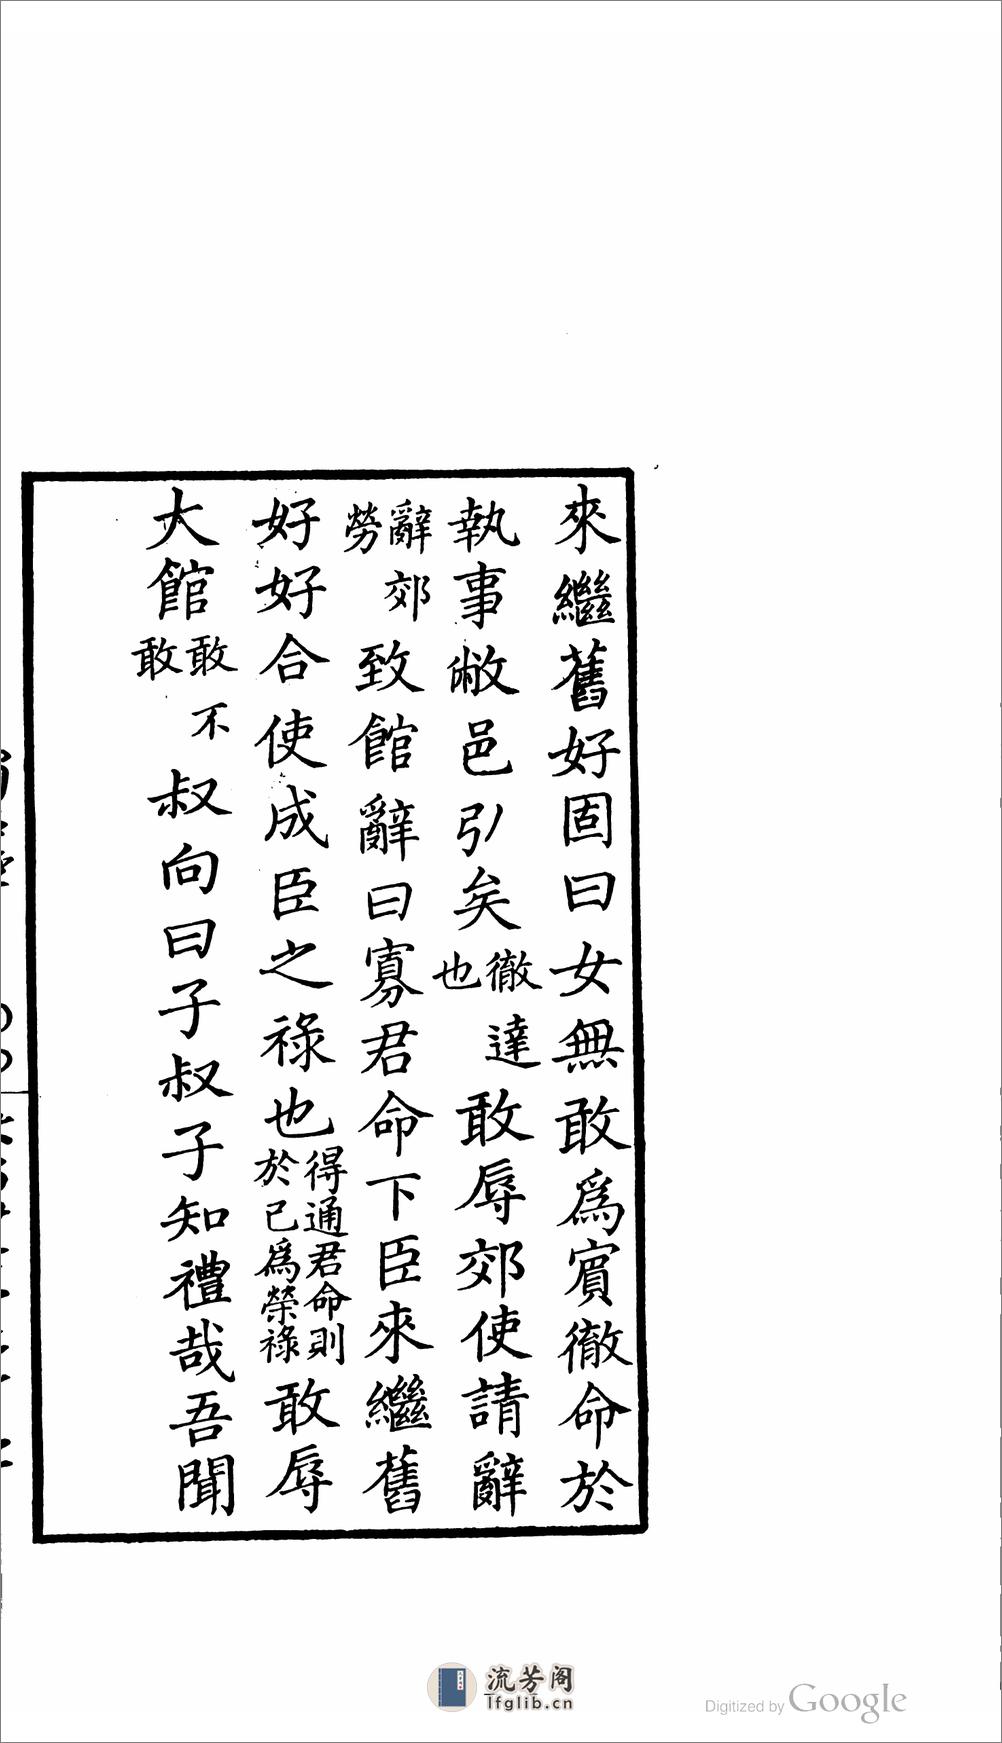 來繼舊好固曰女無敢爲賓徹命於
執事敝邑弘矣徹達也敢辱郊使請辭
辭郊勞致館辭曰寡君命下臣來繼舊
好好合使成臣之祿也得通君命則於己爲榮祿敢辱
大館敢不敢叔向曰子叔子知禮哉吾聞
流芳阁
lfglib.cn
Digitized by Google